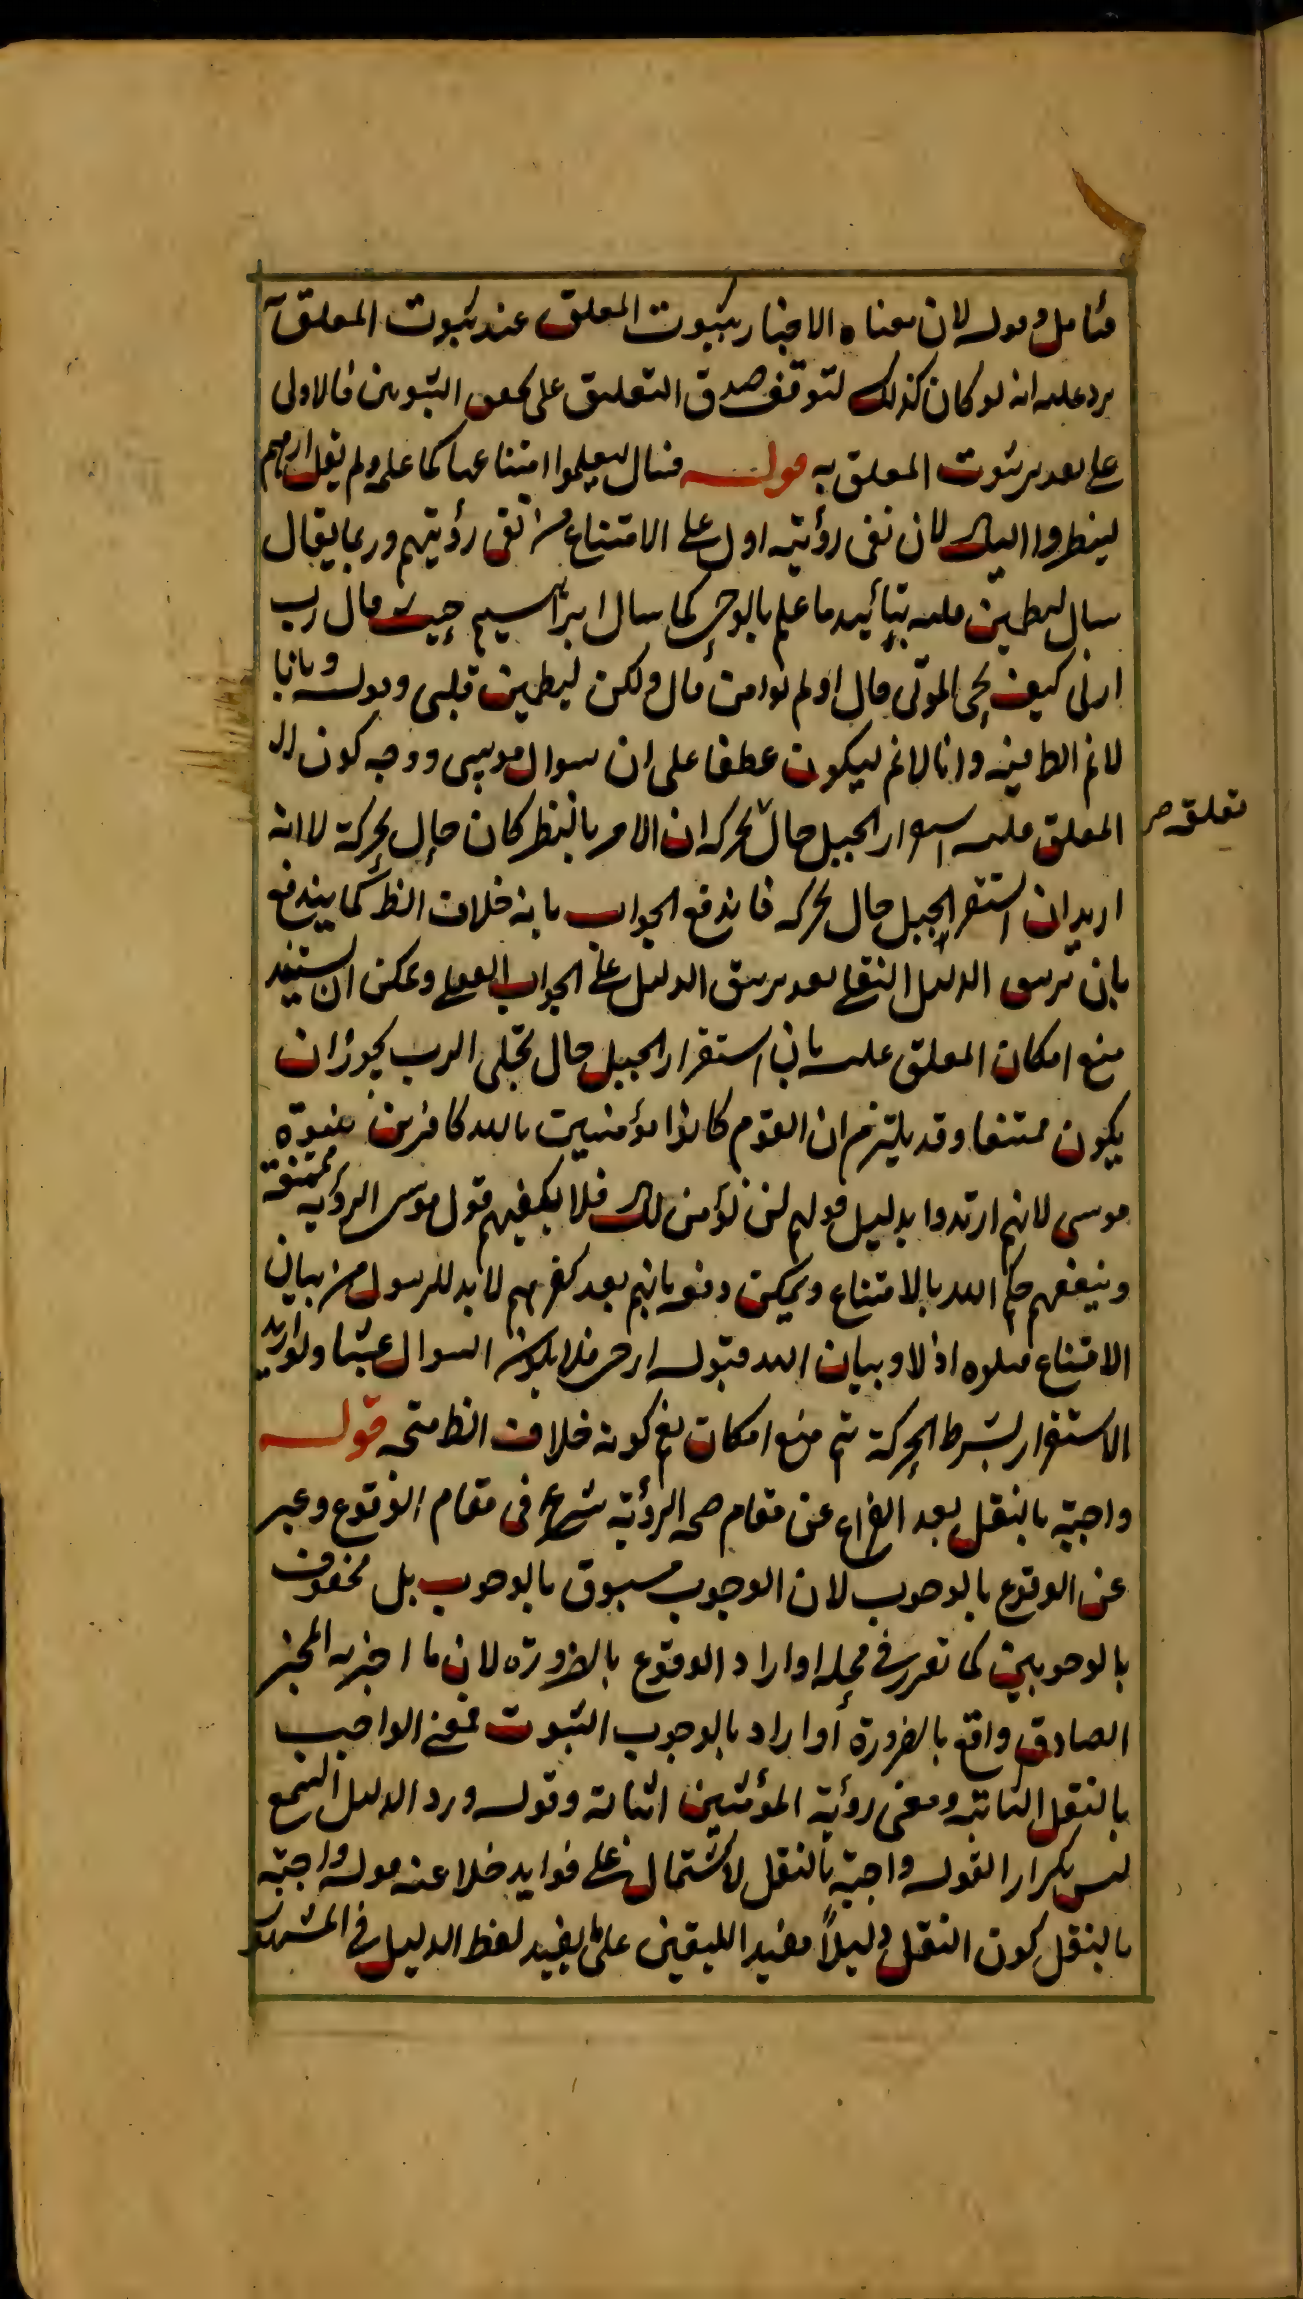 فتأمل وقوله لان معناه الاخبار بثبوت المعلق عند ثبوت المعلق به
يرد عليه انه لو كان كذلك لتوقف صدق التعليق على تحقق الثبوتين فالاولى
على تقدير ثبوت المعلق به قوله فسال ليعلموا امتناعها كما علمه ولم يقل ارهم
لينظروا اليك لان نفى رؤيته اول على الامتناع من نفى رؤيتهم وربما يقال
سال ليطمئن قلبه بتأييد ما علم بالوحى كما سال ابراهيم حيث قال رب
ارنى كيف تحى الموتى قال اولم تؤمن قال ولكن ليطمئن قلبى وقوله وبانا
لا نم الطا منه وانا لا نم ليكون عطفا على ان سوال موسى ووجه كون ال
تعلق صح
المعلق عليه استقرار الجبل حال تحركه ان الامر بالنظر كان حال تحركه لا انه
اريد ان استقر الجبل حال تحركه فاندفع الجواب بانه خلاف الظ كما يندفع
بان تزييف الدليل النقلى بعد تزييف الدليل على الجواب العقلى ويمكن ان يستفيد
منع امكان المعلق عليه بان استقرار الجبل حال تجلى الرب يجوز ان
يكون ممتنعا وقد يلتزم ان القوم كانوا مؤمنين بالله كافرين بنبوة
موسى لانهم ارتدوا بدليل قولهم لن نؤمن لك فلا يكفيهم قول موسى الرؤية ممتنعة
وينفعهم حكم الله بالامتناع ويمكن دفعه بانهم بعد كفرهم لا بد للرسول من بيان
الامتناع قبلوه اولا وبيان الله فلا يكون السوال عبثا ولو اريد
الاستقرار بشرط الحركة تم منع امكان نعم كونه خلاف الظ متجه قوله
واجبة بالنقل بعد الفراغ عن مقام صحة الرؤية شرع فى مقام الوقوع وعبر
عن الوقوع بالوجوب لان الوجوب مسبوق بالوجوب بل محفوف
بالوجوبين كما تقرر فى محله او اراد الوقوع بالضرورة لان ما اخبر به المخبر
الصادق واقع بالضرورة أو اراد بالوجوب الثبوت فمعنى الواجب
بالنقل الثابتة ومعنى رؤية المؤمنين اثباته وقوله ورد الدليل السمع
ليس تكرارا لقوله واجبة بالنقل لاشتماله على فوايد خلا عنه قوله واجبة
بالنقل كون النقل دليلاً مفيدا لليقين على ما يفيد لفظ الدليل فى المشهور